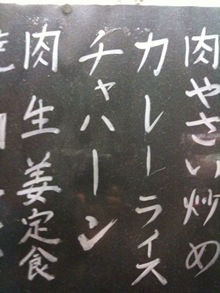 肉やさい炒め
カレーライス
チャハーン
肉生姜定食